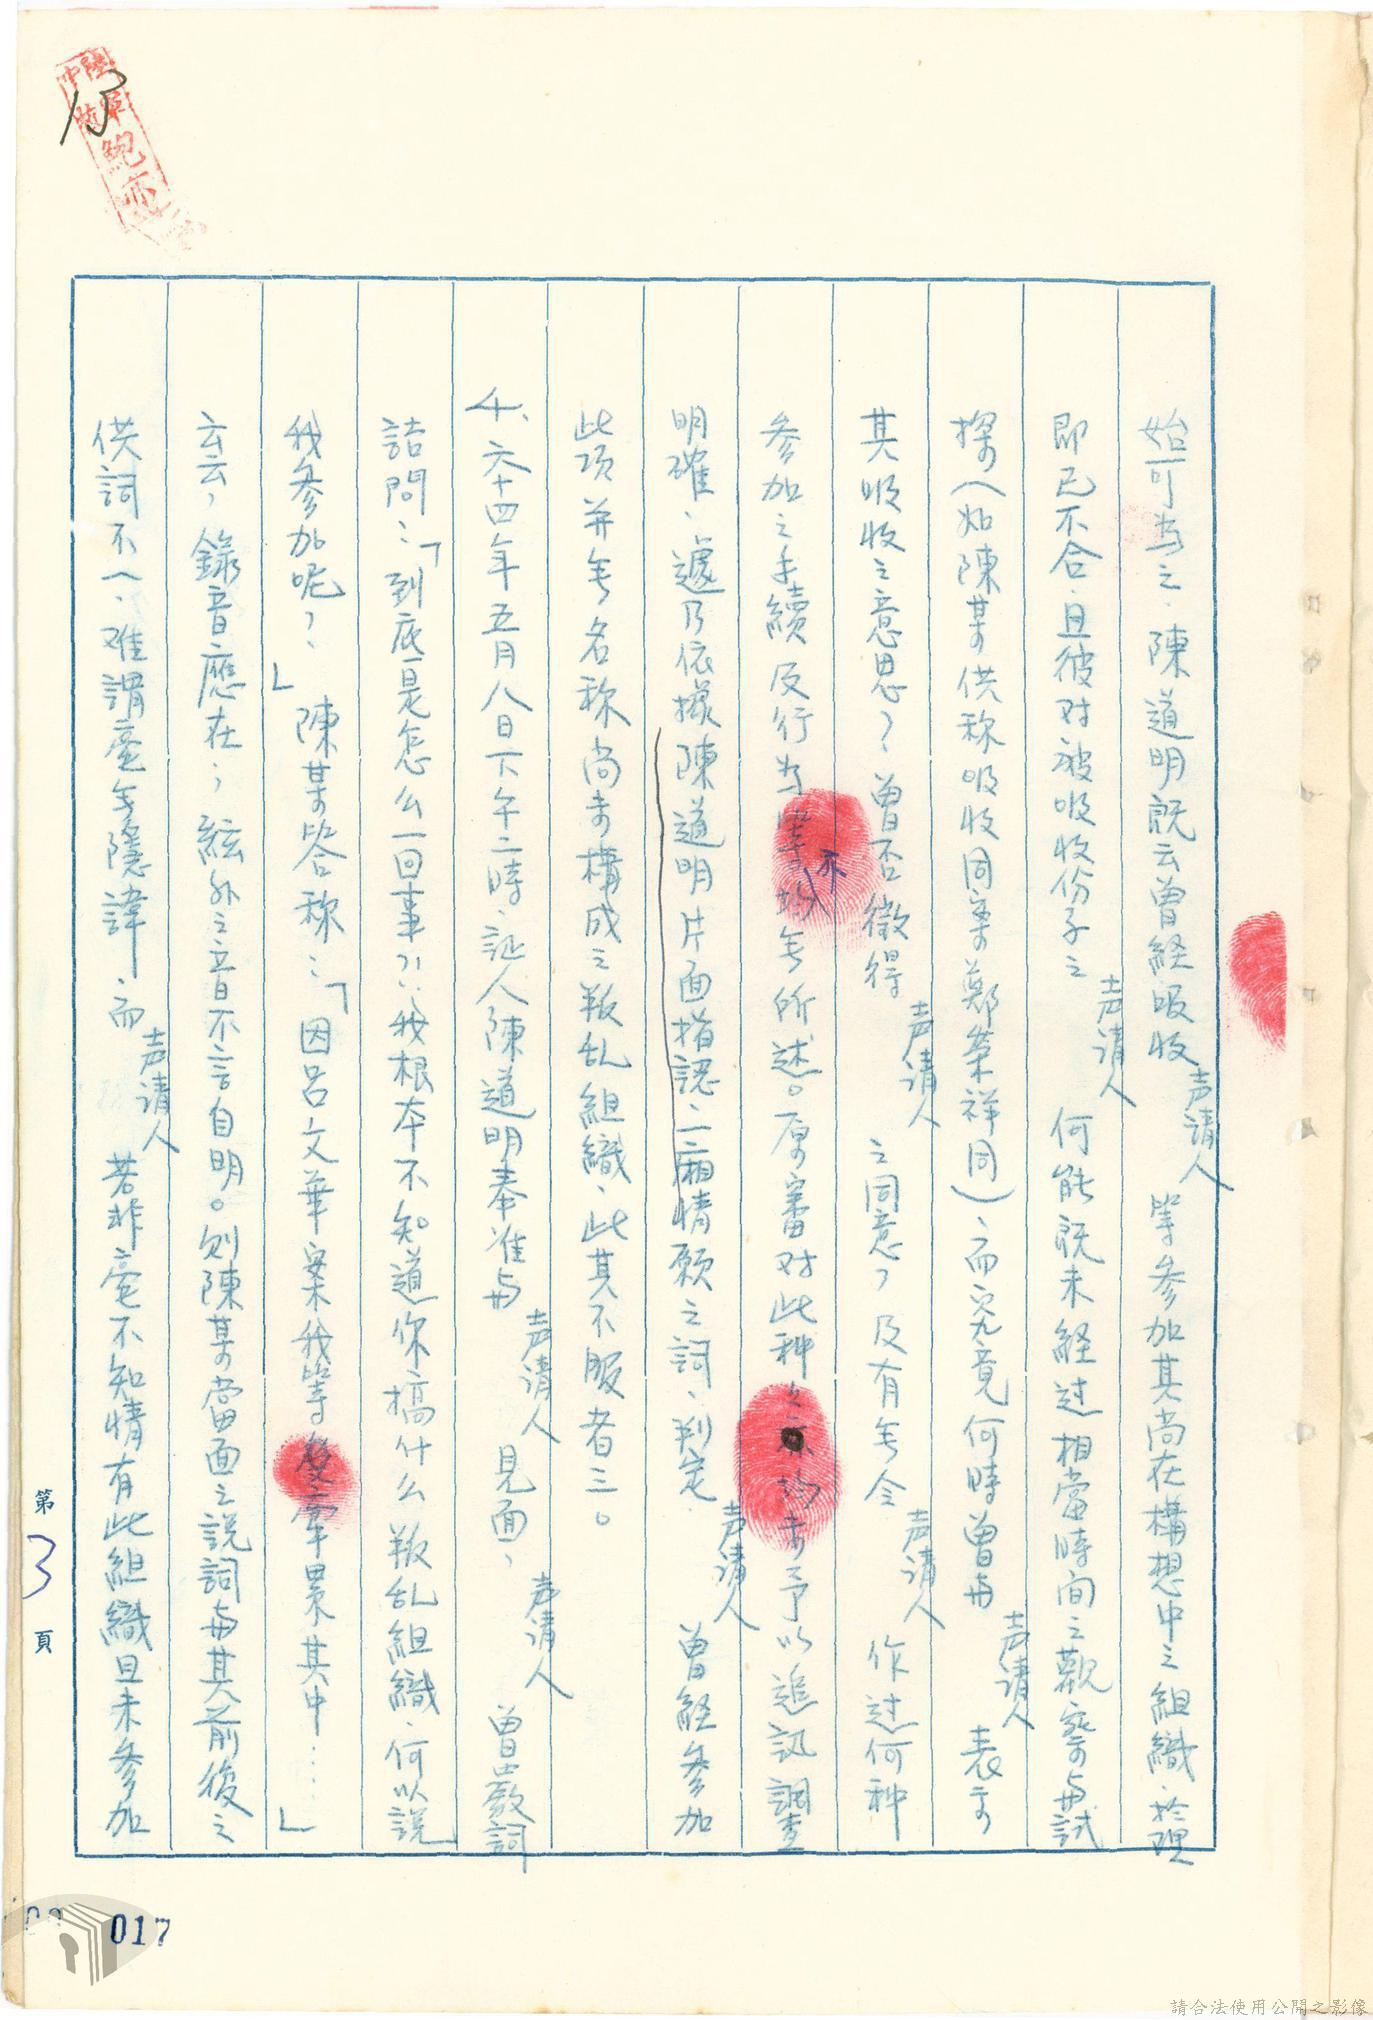 始可為之.陳道明既云曾経吸收声請人等参加其尚在構想中之組織.於理
即已不合.且彼对被吸收份子之声請人何能既未経过相當時间之觀察与試
探(如陳某供称吸收同案鄭荣祥同)、而究竟何時曾与声請人表示
其吸收之意思?、曾否徵得声請人之同意?及有无令声請人作过何种
参加之手續及行为亦无所述。原審对此种未予以追訊調查
明確、遽乃依據陳道明片面指認、一廂情願之詞、判定声請人曾経参加
此項并无名称尚未構成之叛乱組織、此其不服者三。
4、六十四年五月八日下午二時、証人陳道明奉准与声請人見面、声請人曾嚴詞
詰問:「到底是怎么一回事?!我根本不知道你搞什么叛乱組織.何以説
我参加呢?、」陳某答称:「因呂文華案我等牽累其中……」
云云,錄音應在,絃外之音不言自明。则陳某當面之説詞与其前後之
供詞不一、难謂毫无隱諱、而声請人若非毫不知情有此組織且未参加
第3頁
13
陸軍
鮑亦
017
請合法使用公開之影像